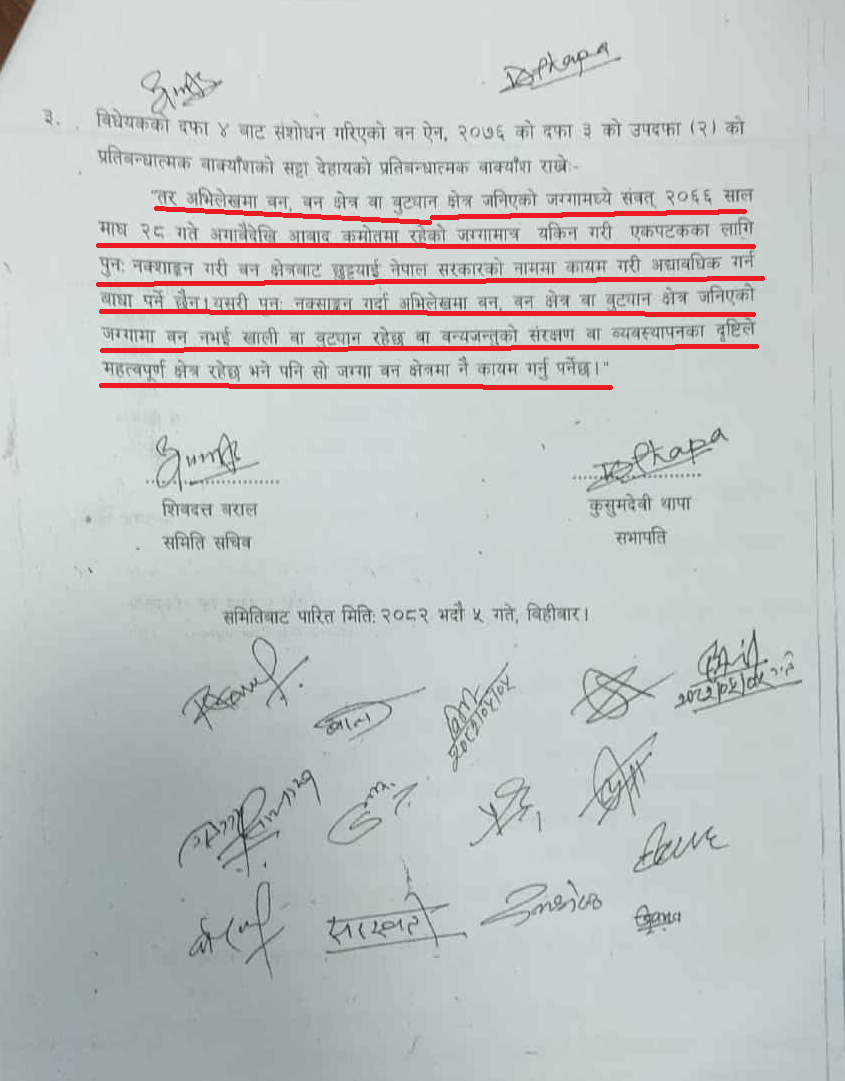 Thapa
३. विधेयकको दफा ४ बाट संशोधन गरिएको वन ऐन, २०७६ को दफा ३ को उपदफा (२) को
प्रतिबन्धात्मक वाक्याँशको सट्टा देहायको प्रतिबन्धात्मक वाक्याँश राखेः-
"तर अभिलेखमा वन, वन क्षेत्र वा वुट्यान क्षेत्र जनिएको जग्गामध्ये संवत् २०६६ साल
माघ २८ गते अगावैदेखि आवाद कमोतमा रहेको जग्गामात्र यकिन गरी एकपटकका लागि
पुनः नक्शाङ्कन गरी वन क्षेत्रबाट छुट्टयाई नेपाल सरकारको नाममा कायम गरी अद्यावधिक गर्न
बाधा पर्ने छैन। यसरी पुनः नक्साङ्कन गर्दा अभिलेखमा वन, वन क्षेत्र वा वुट्यान क्षेत्र जनिएको
जग्गामा वन नभई खाली वा वुट्यान रहेछ वा वन्यजन्तुको संरक्षण वा व्यवस्थापनका दृष्टिले
महत्वपूर्ण क्षेत्र रहेछ भने पनि सो जग्गा वन क्षेत्रमा नै कायम गर्नु पर्नेछ।"
Thapa
शिवदत्त बराल
कुसुमदेवी थापा
समिति सचिव
सभापति
समितिबाट पारित मितिः २०८२ भदौ ५ गते, बिहीबार।
२०८२/०५/०५
२०८२/०५/०५ गते
सरस्वती